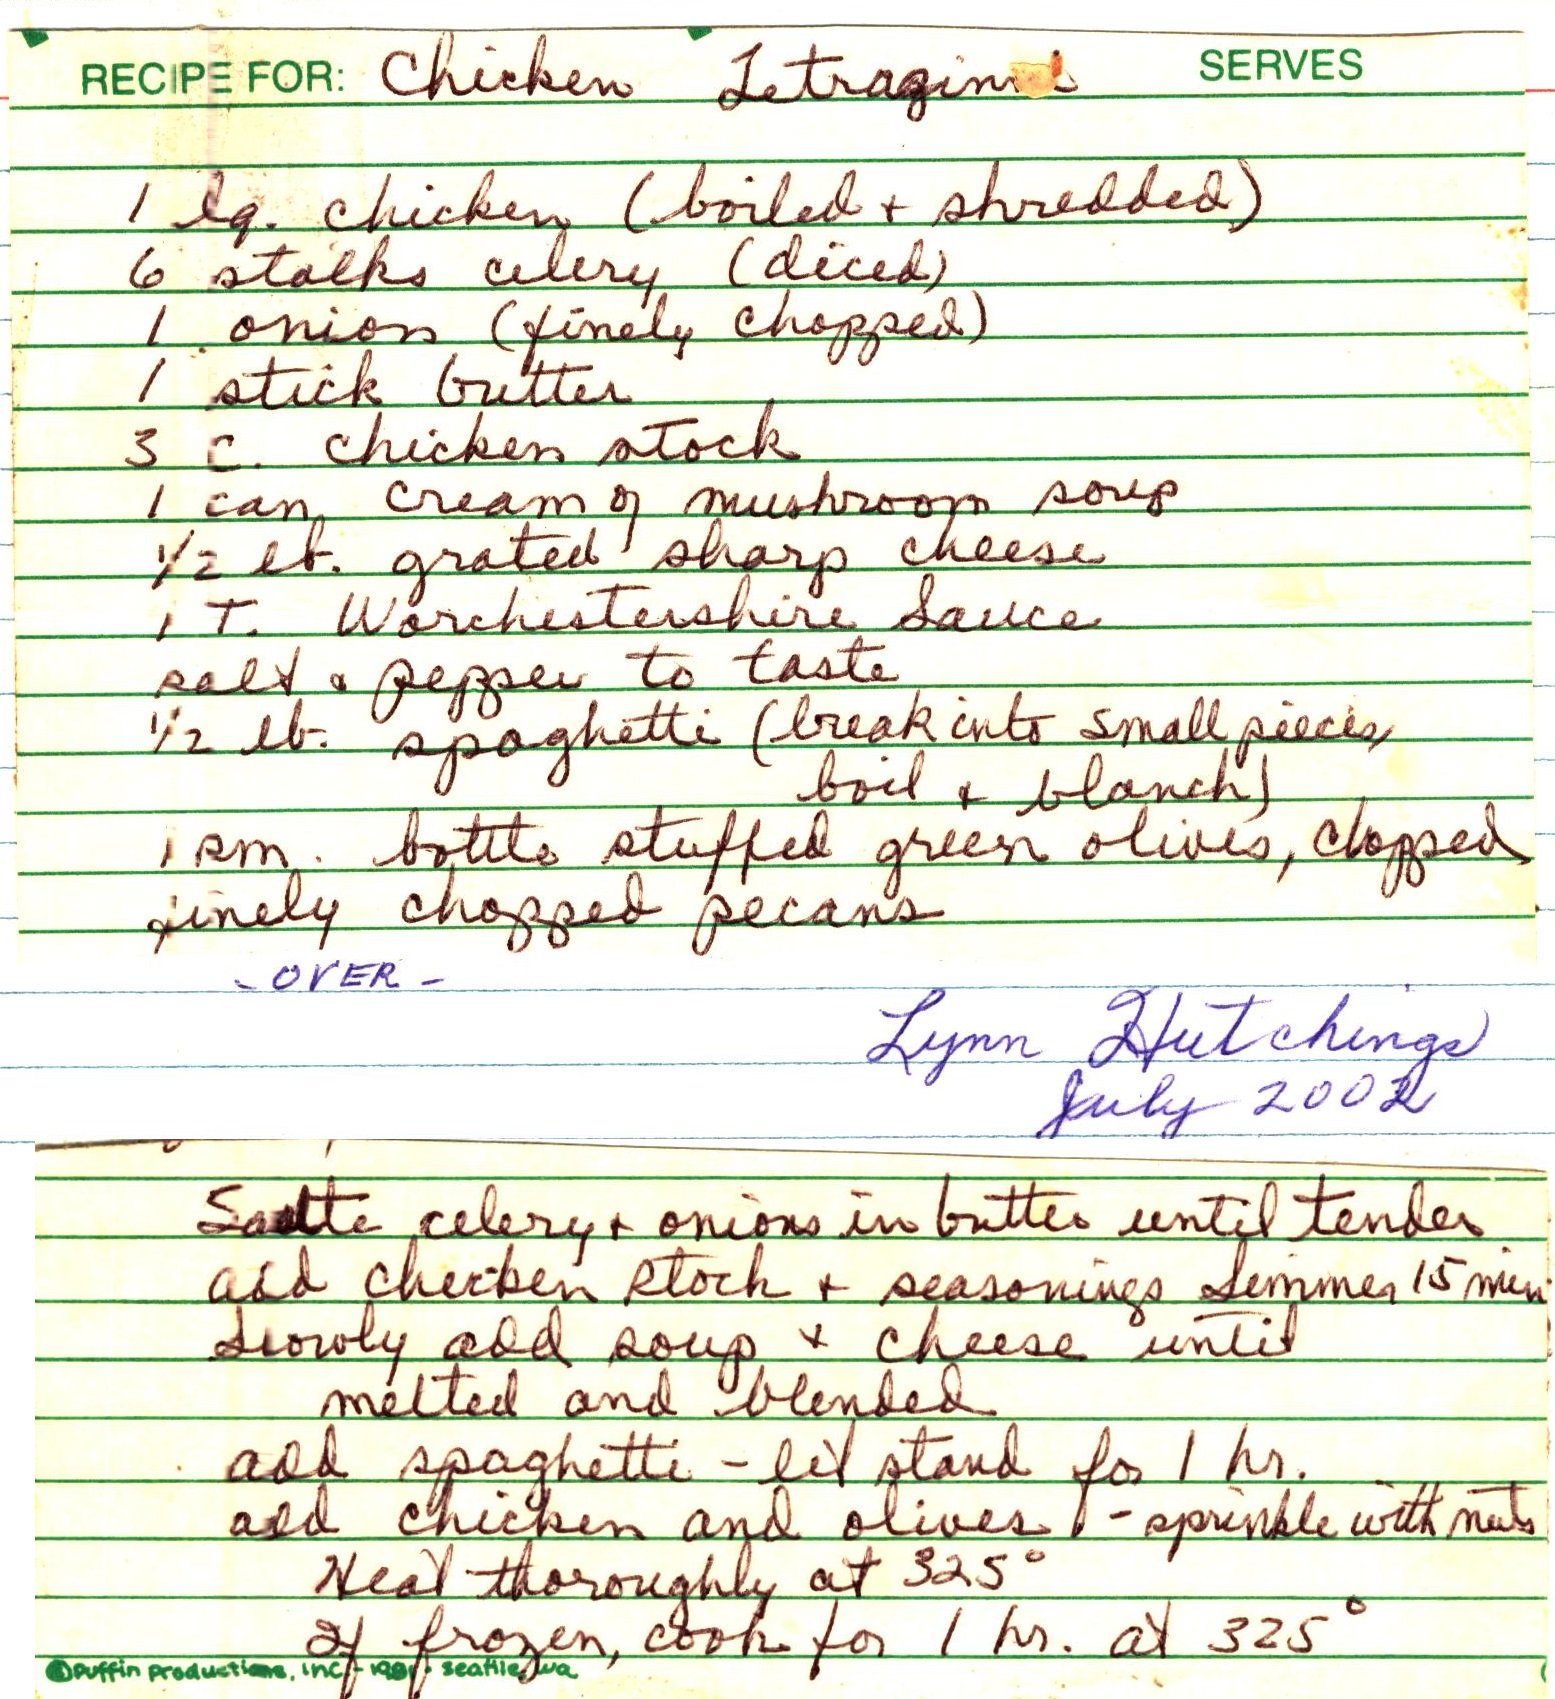 RECIPE FOR: Chicken SERVES
1 lg. chicken (boiled + shredded)
6 stalks celery (diced)
1 onion (finely chopped)
1 stick butter
3 C. chicken stock
1 can cream of mushroom soup
1/2 lb. grated sharp cheese
1 T. Worchestershire Sauce
salt & pepper to taste
1/2 lb. spaghetti (break into small pieces,
boil & blanch)
1 sm. bottle stuffed green olives, chopped
finely chopped pecans
- OVER -
Lynn Hutchings
July 2002
celery + onions in butter until tender
add chicken stock + seasonings Simmer 15 min
Slowly add soup & cheese until
melted and blended
add spaghetti - let stand for 1 hr.
add chicken and olives - sprinkle with nuts
Heat thoroughly at 325°
If frozen, cook for 1 hr. at 325°
©Puffin Productions, Inc. - 1981 - Seattle, Wa